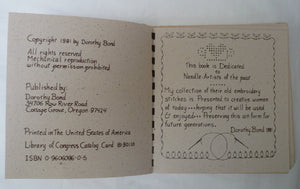 Copyright 1981 by Dorothy Bond
All rights reserved
Mechanical reproduction
without permission prohibited
Published by:
Dorothy Bond
34706 Row River Road
Cottage Grove, Oregon 97424
Printed in The United States of America
Library of Congress Catalog Card
ISBN 0-9606086-0-5
This book is Dedicated
to
Needle Artists of the past
My collection of their old embroidery
stitches is Presented to creative women
of today...hoping that it will be used
& enjoyed...Preserving this art form for
future generations.
Dorothy Bond 1981